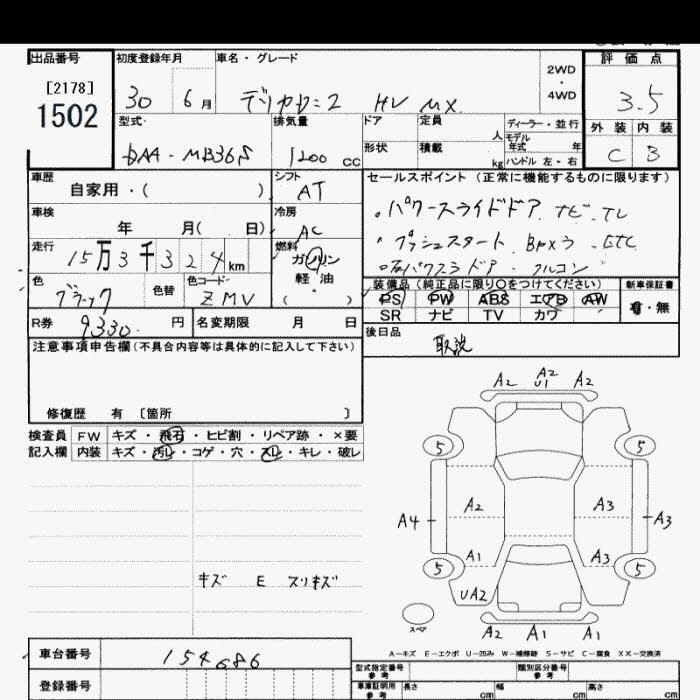 出品番号
[2178]
1502
初度登録年月
30 6月
車名・グレード
デリカD:2 HV MX
2WD
・
4WD
評価点
3.5
外装 内装
C B
型式
DAA-MB36S
排気量
1200 cc
ドア
形状
定員 人
積載 kg
ディーラー・並行
モデル年式 年
ハンドル 左・右
車歴
自家用・( )
シフト
AT
車検
年 月( 日)
冷房
AC
走行
15万3千324km
燃料
ガソリン
軽・油
( )
色
ブラック
色替
色コード
ZMV
R券
9330 円
名変期限 月 日
セールスポイント(正常に機能するものに限ります)
・パワースライドドア ナビ・TV
・プッシュスタート ETC
装備品(純正品に限り○をつけてください)
PS PW ABS エアB AW
SR ナビ TV カワ
新車保証書
有・無
後日品
取説
注意事項申告欄(不具合内容等は具体的に記入して下さい)
修復歴 有 〔箇所 〕
検査員記入欄
FW キズ・飛石・ヒビ割・リペア跡・×要
内装 キズ・汚レ・コゲ・穴・スレ・キレ・破レ
キズ E スリキズ
A2 A2 U1 A2
5 5
A2 A3
A4 A3
A1 A3
5 5
UA2
A2 A1 A1
スペア
A-キズ E-エクボ U-凹み W-補修跡 S-サビ C-腐食 XX-交換済
車台番号
154686
登録番号
型式指定番号 参考
類別区分番号 参考
車庫証明用 参考
長さ cm
幅 cm
高さ cm